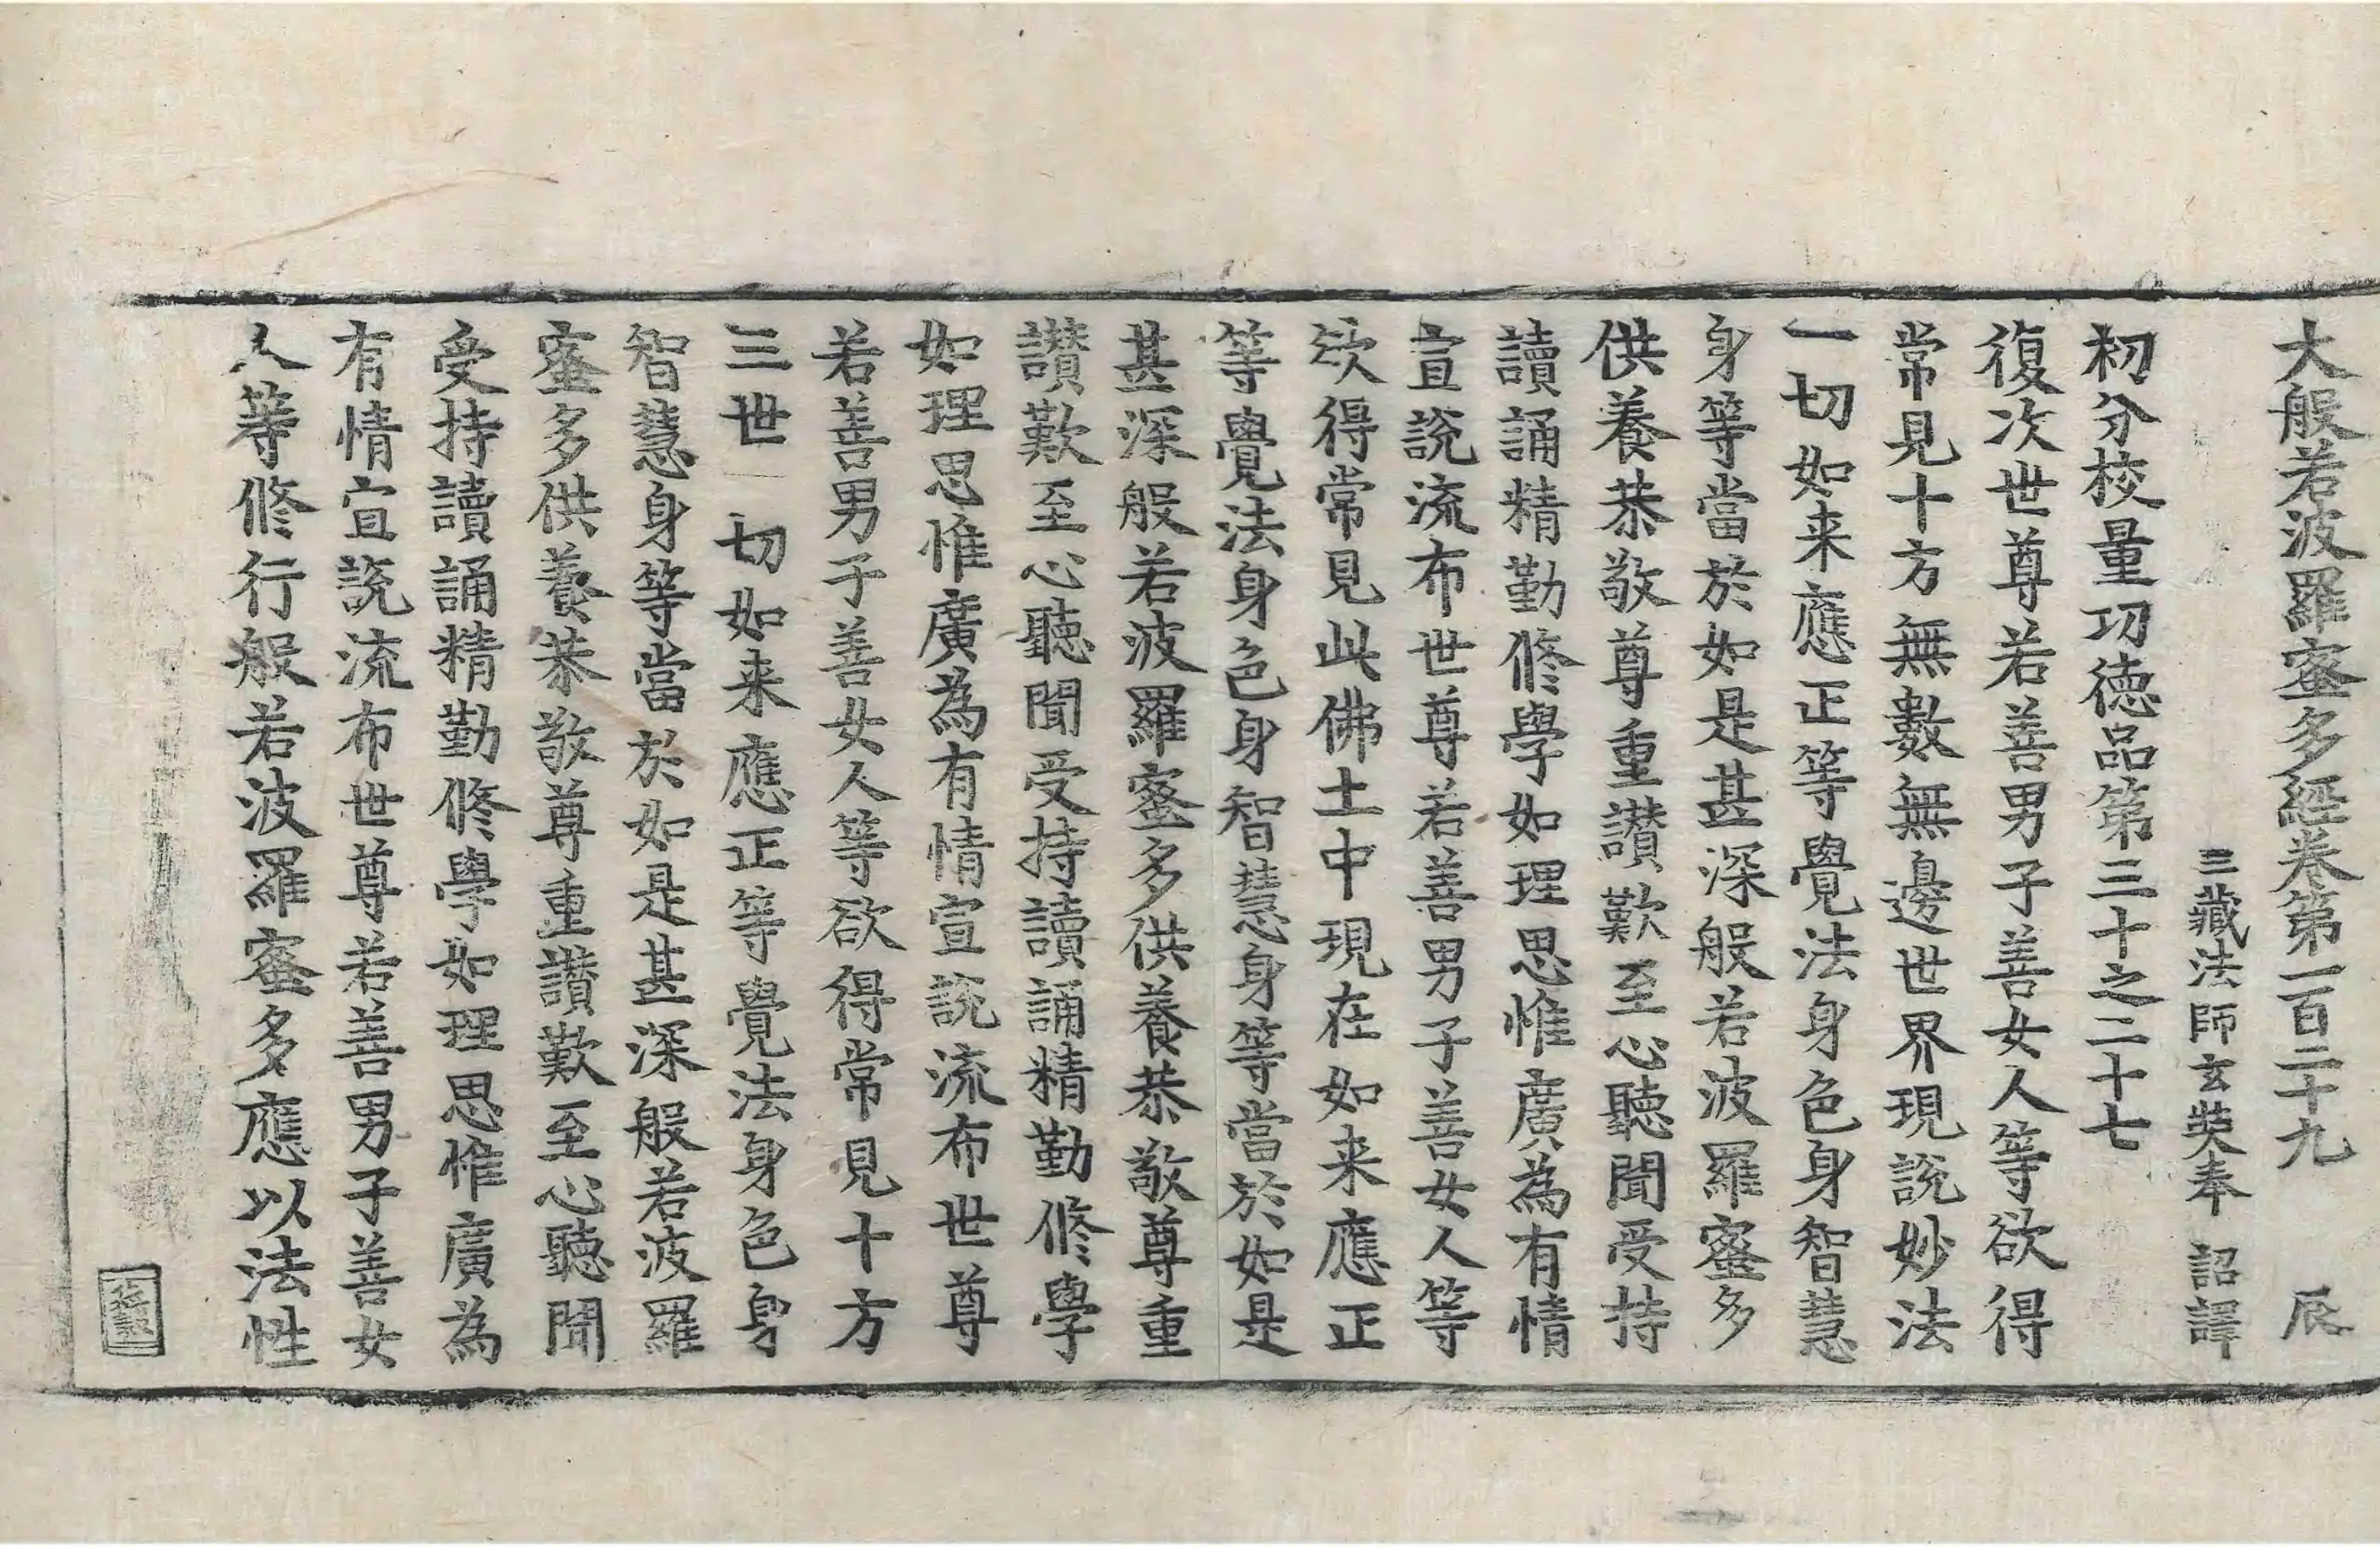 大般若波羅蜜多經卷第一百二十九 辰
三藏法師玄奘奉 詔譯
初分校量功德品第三十之二十七
復次世尊若善男子善女人等欲得
常見十方無數無邊世界現說妙法
一切如来應正等覺法身色身智慧
身等當於如是甚深般若波羅蜜多
供養恭敬尊重讃歎至心聽聞受持
讀誦精勤修學如理思惟廣為有情
宣說流布世尊若善男子善女人等
欲得常見此佛土中現在如来應正
等覺法身色身智慧身等當於如是
甚深般若波羅蜜多供養恭敬尊重
讃歎至心聽聞受持讀誦精勤修學
如理思惟廣為有情宣說流布世尊
若善男子善女人等欲得常見十方
三世 切如来應正等覺法身色身
智慧身等當於如是甚深般若波羅
蜜多供養恭敬尊重讃歎至心聽聞
受持讀誦精勤修學如理思惟廣為
有情宣說流布世尊若善男子善女
人等修行般若波羅蜜多應以法性